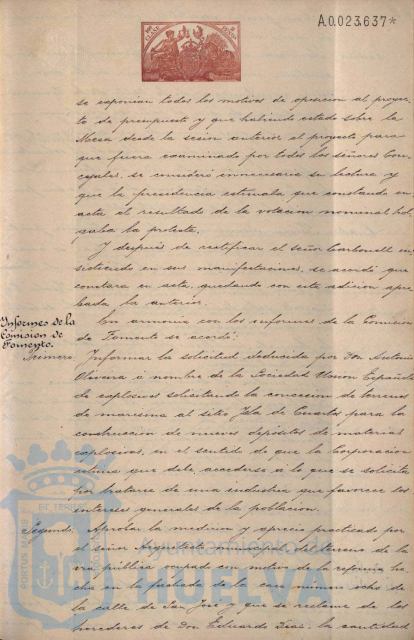 A.0.023.637*
se exponian todos los motivos de oposicion al proyec-
to de presupuesto y que habiendo estado sobre la
Mesa desde la sesion anterior el proyecto para
que fuera examinado por todos los señores Con-
cejales, se consideró innecesaria su lectura y
que la presidencia estimaba que constando en
acta el resultado de la votacion nominal hol-
gaba la protesta.
Y despues de rectificar el señor Carbonell in-
sistiendo en sus manifestaciones, se acordó que
constara en acta, quedando con esta adicion apro-
bada la anterior.
Informes de la
Comision de
Fomento.
En armonia con los informes de la Comision
de Fomento se acordó:
Primero. Informar la solicitud deducida por Don Antonio
Oliveira á nombre de la Sociedad Union Española
de explosivos solicitando la concesion de terrenos
de marisma al sitio Isla de Cuartos para la
construccion de nuevos depósitos de materias
explosivas, en el sentido de que la Corporacion
estima que debe accederse á lo que se solicita
por tratarse de una industria que favorece los
intereses generales de la poblacion.
Segundo. Aprobar la medicion y aprecio practicado por
el señor Arquitecto municipal del terreno de la
via pública ocupado con motivo de la reforma he-
cha en la fachada de la casa número ocho de
la calle de San José y que se reclame de los
herederos de Don Eduardo Diaz, la cantidad
Ayuntamiento de
HUELVA